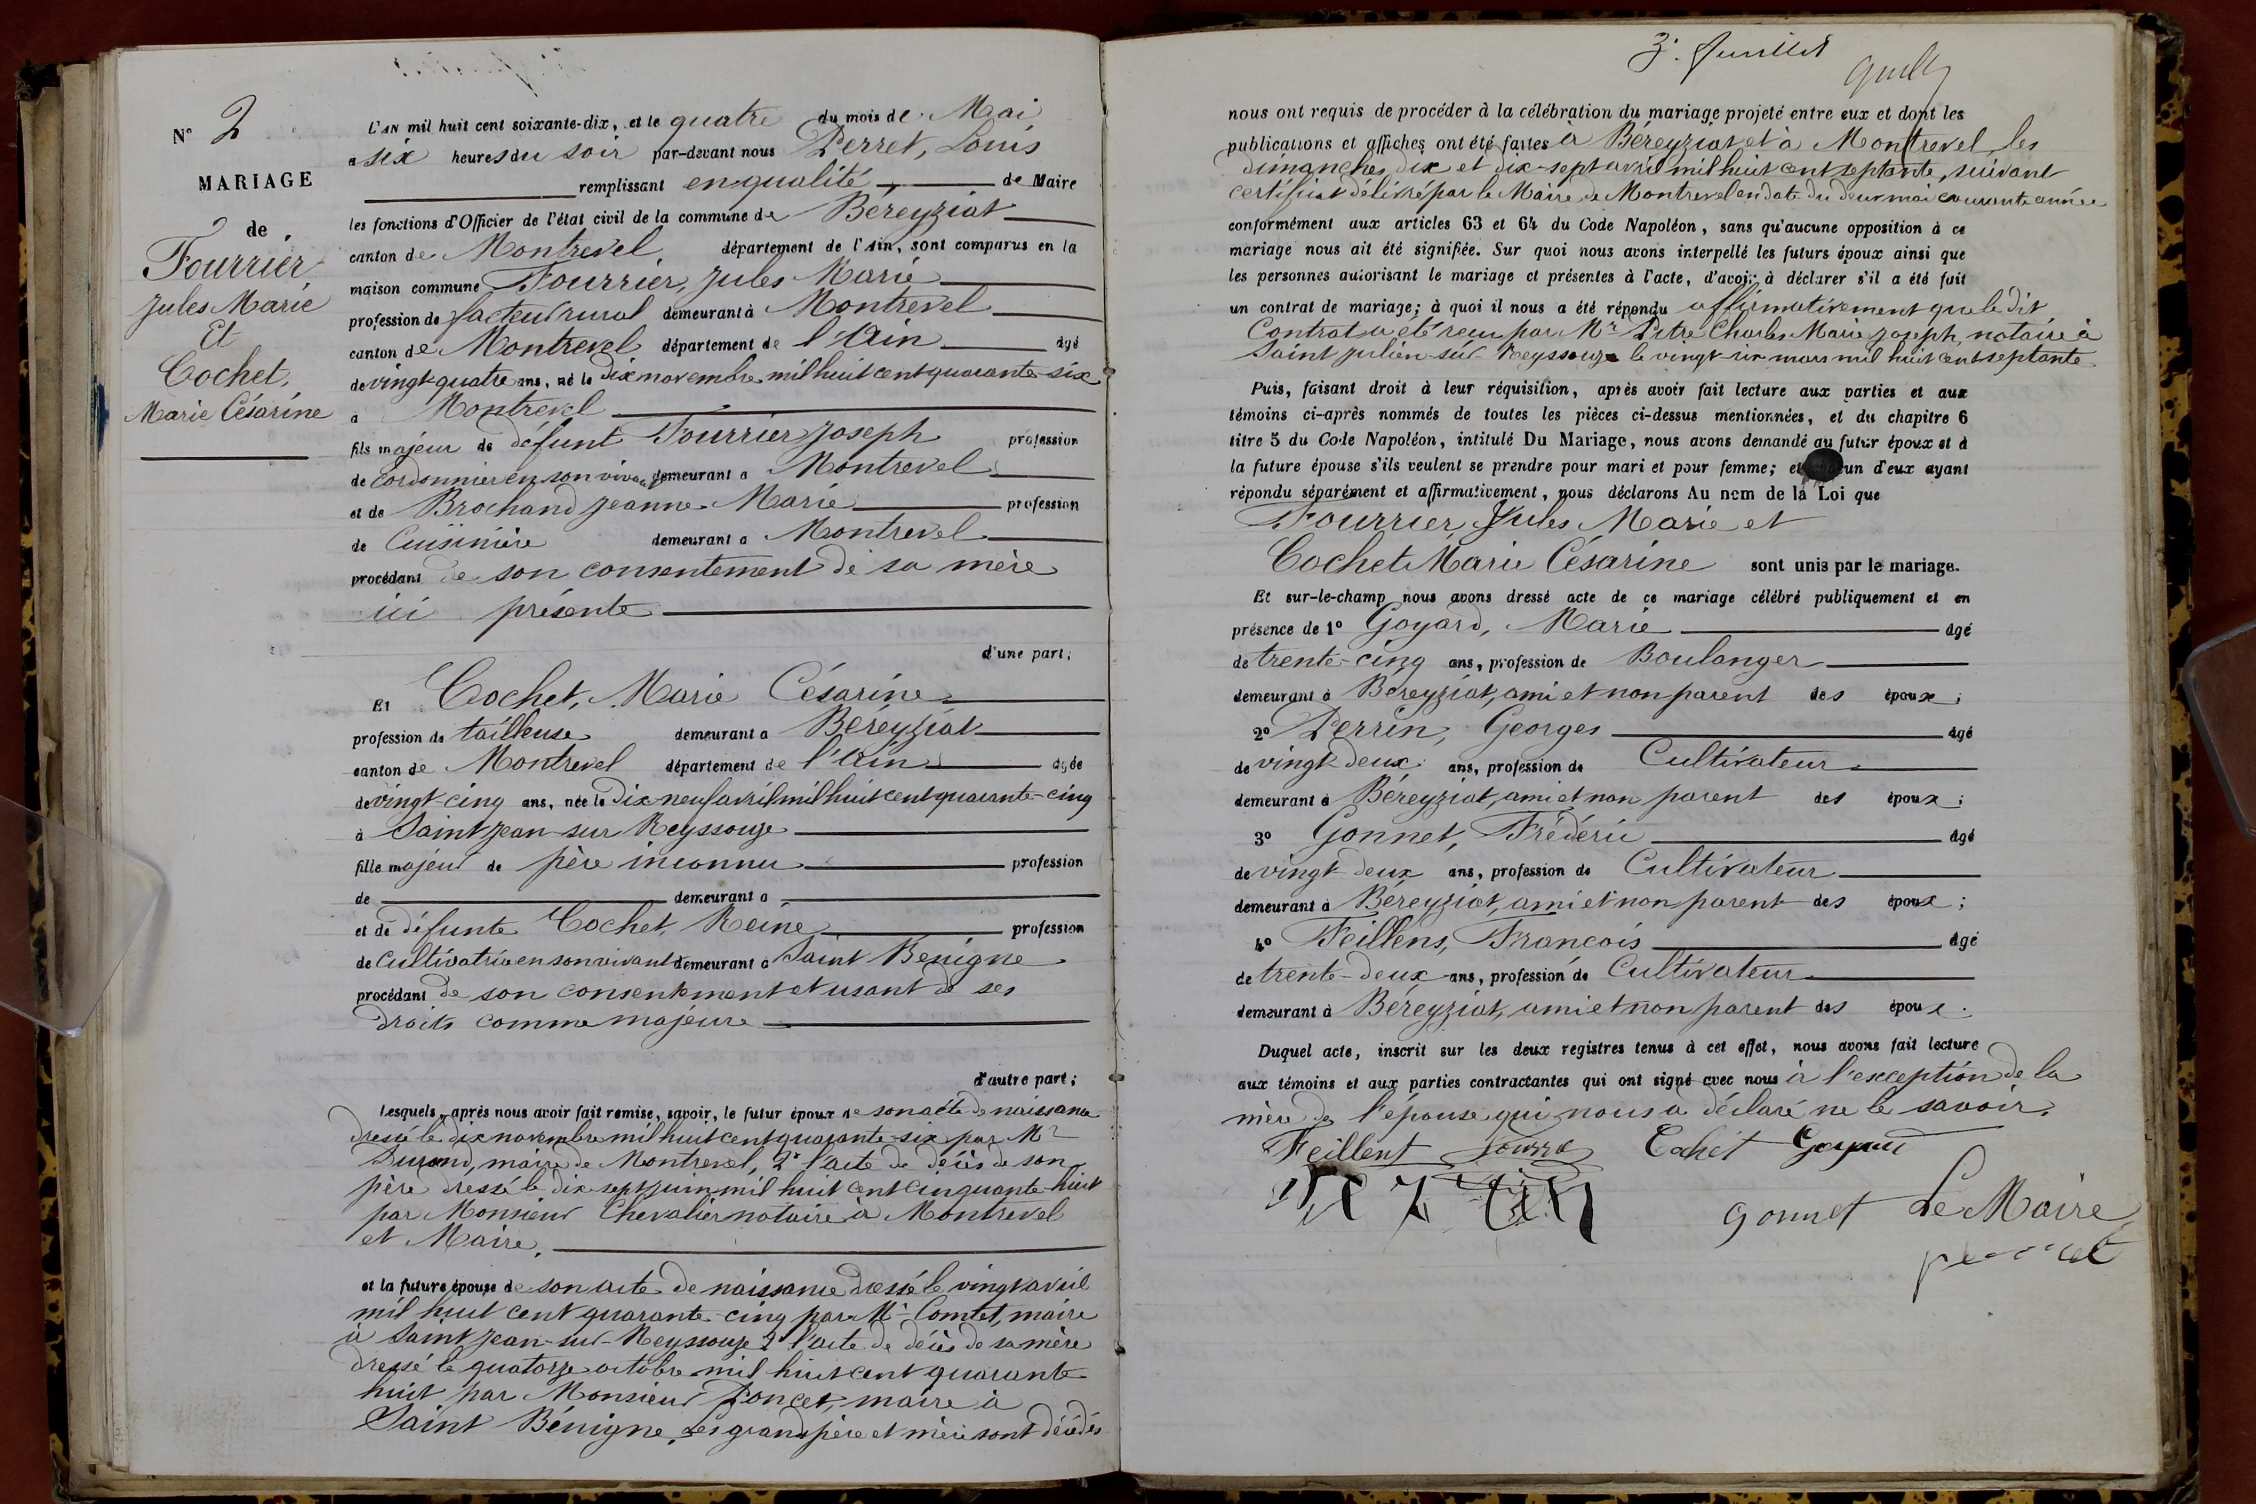 N° 2
MARIAGE
de
Fourrier
Jules Marie
Et
Cochet,
Marie Césarine
L'AN mil huit cent soixante-dix, et le quatre du mois de Mai
a six heures du soir par-devant nous Perret, Louis
remplissant en qualité de Maire
les fonctions d'Officier de l'état civil de la commune de Béreyziat
canton de Montrevel département de l'Ain, sont comparus en la
maison commune Fourrier, Jules Marie
profession de facteur rural demeurant à Montrevel
canton de Montrevel département de l'Ain âgé
de vingt-quatre ans, né le dix novembre mil huit cent quarante-six
a Montrevel
fils majeur de défunt Fourrier Joseph profession
de cordonnier en son vivant demeurant a Montrevel
et de Brochand Jeanne Marie profession
de Cuisinière demeurant a Montrevel
procédant de son consentement de sa mère
ici présente
d'une part;
Et Cochet, Marie Césarine
profession de tailleuse demeurant a Béreyziat
canton de Montrevel département de l'Ain âgée
de vingt-cinq ans, née le dix neuf avril mil huit cent quarante-cinq
à Saint Jean sur Reyssouze
fille majeur de père inconnu profession
de demeurant a
et de défunte Cochet, Reine profession
de cultivatrice en son vivant demeurant a Saint Bénigne
procédant de son consentement et usant de ses
droits comme majeure
d'autre part;
Lesquels, après nous avoir fait remise, savoir, le futur époux de son acte de naissance
dressé le dix novembre mil huit cent quarante-six par Mr
Durand, maire de Montrevel, 2° l'acte de décès de son
père dressé le dix sept juin mil huit cent cinquante-huit
par Monsieur Chevalier notaire à Montrevel
et Maire.
et la future épouse de son acte de naissance dressé le vingt avril
mil huit cent quarante-cinq par Mr Comtet, maire
à Saint Jean-sur-Reyssouze 2° l'acte de décès de sa mère
dressé le quatorze octobre mil huit cent quarante
huit par Monsieur Poncet, maire à
Saint Bénigne, Les grand père et mère sont décédés
3e feuillet
nous ont requis de procéder à la célébration du mariage projeté entre eux et dont les
publications et affiches ont été faites à Béreyziat et à Montrevel, les
dimanches, dix et dix-sept avril mil huit cent septante, suivant
certificat délivré par le Maire de Montrevel en date du deux mai courante année
conformément aux articles 63 et 64 du Code Napoléon, sans qu'aucune opposition à ce
mariage nous ait été signifiée. Sur quoi nous avons interpellé les futurs époux ainsi que
les personnes autorisant le mariage et présentes à l'acte, d'avoir à déclarer s'il a été fait
un contrat de mariage; à quoi il nous a été répondu affirmativement que le dit
Contrat a été reçu par Mr Pitre Charles Marie Joseph, notaire à
Saint Julien sur Reyssouze le vingt-un mars mil huit cent septante
Puis, faisant droit à leur réquisition, après avoir fait lecture aux parties et aux
témoins ci-après nommés de toutes les pièces ci-dessus mentionnées, et du chapitre 6
titre 5 du Code Napoléon, intitulé Du Mariage, nous avons demandé au futur époux et à
la future épouse s'ils veulent se prendre pour mari et pour femme; et chacun d'eux ayant
répondu séparément et affirmativement, nous déclarons Au nom de la Loi que
Fourrier Jules Marie et
Cochet Marie Césarine sont unis par le mariage.
Et sur-le-champ nous avons dressé acte de ce mariage célébré publiquement et en
présence de 1° Goyard, Marie âgé
de trente-cinq ans, profession de Boulanger
demeurant à Béreyziat, ami et non parent des époux;
2° Perrin, Georges âgé
de vingt-deux ans, profession de Cultivateur
demeurant à Béreyziat, ami et non parent des époux;
3° Gonnet, Frédéric âgé
de vingt-deux ans, profession de Cultivateur
demeurant à Béreyziat, ami et non parent des époux;
4° Feillens, François âgé
de trente-deux ans, profession de Cultivateur
demeurant à Béreyziat, ami et non parent des époux.
Duquel acte, inscrit sur les deux registres tenus à cet effet, nous avons fait lecture
aux témoins et aux parties contractantes qui ont signé avec nous à l'exception de la
mère de l'épouse qui nous a déclaré ne le savoir.
Feillent Cochet Goyard
Gonnet Le Maire
perret